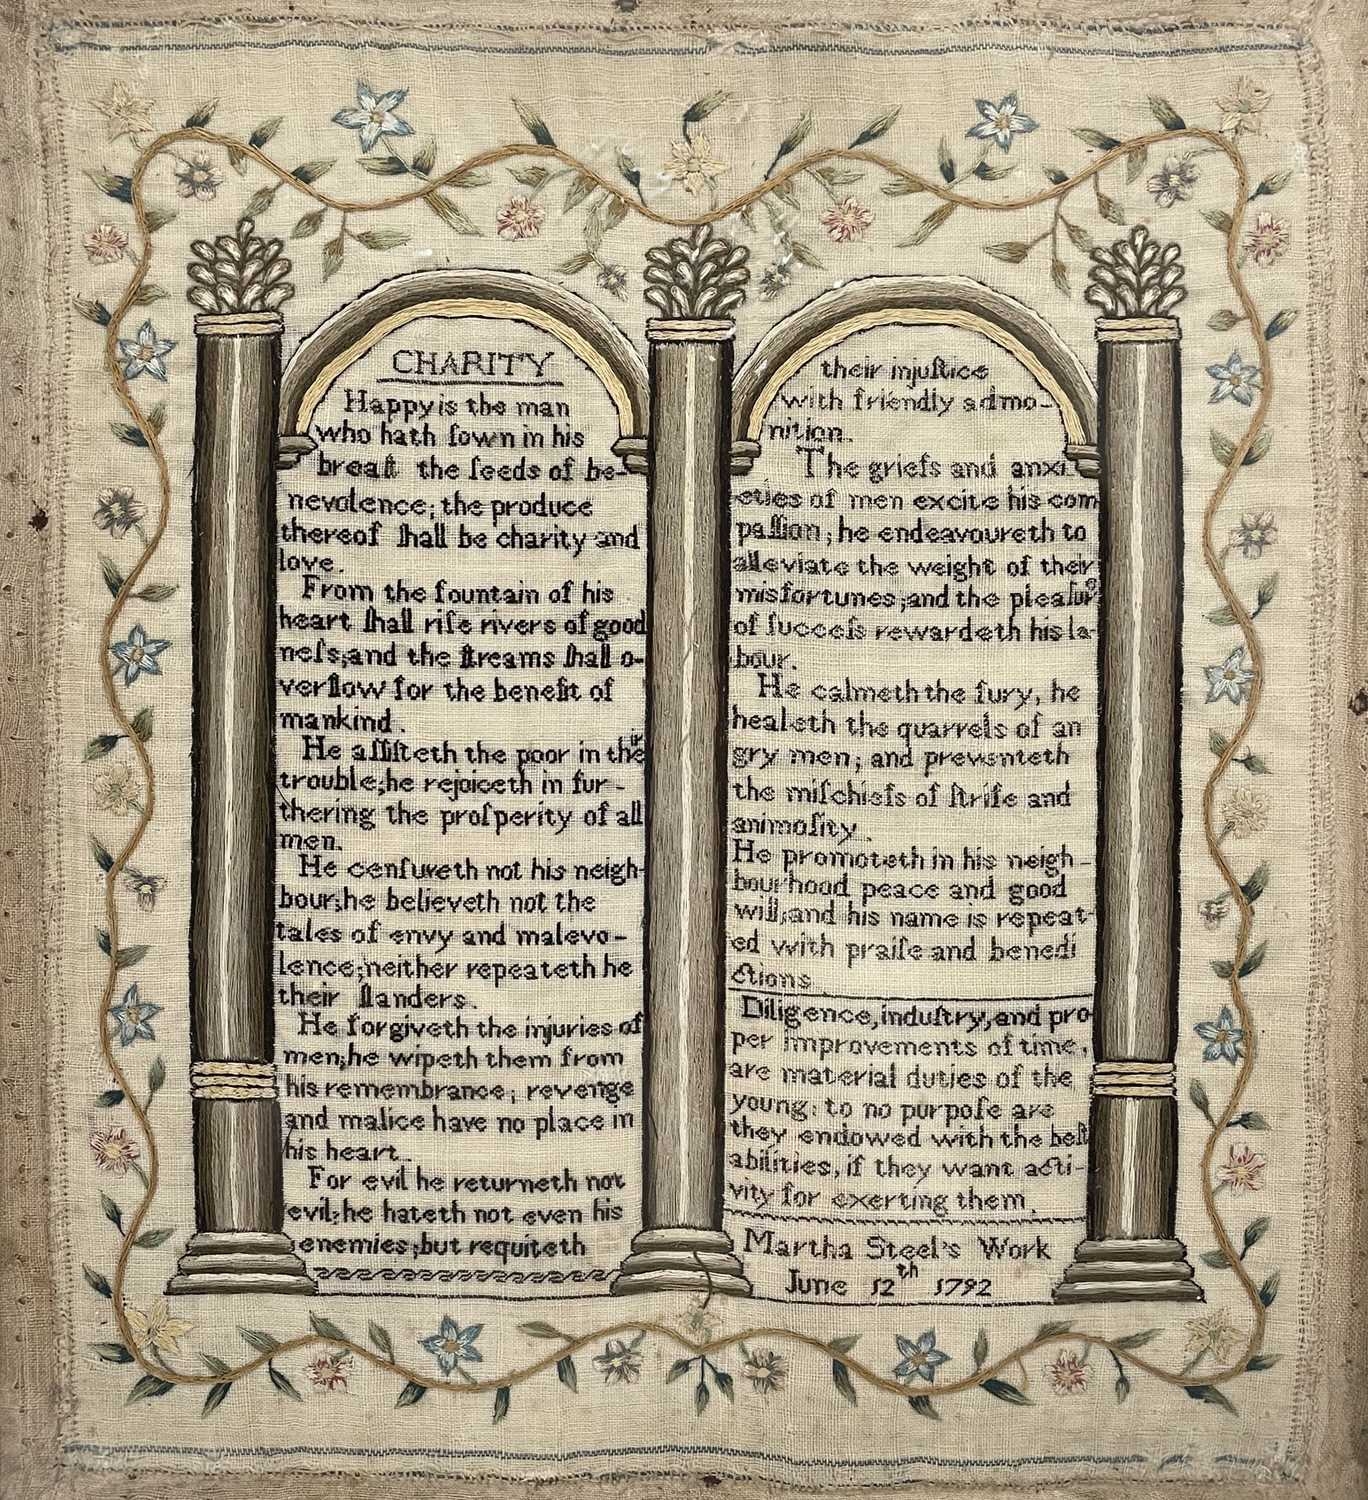 CHARITY
Happy is the man
who hath ſown in his
breaſt the ſeeds of be-
nevolence; the produce
thereof ſhall be charity and
love.
From the fountain of his
heart ſhall riſe rivers of good
neſs;and the ſtreams ſhall o-
verflow for the benefit of
mankind.
He aſſiſteth the poor in their
trouble;he rejoiceth in fur-
thering the proſperity of all
men.
He cenſureth not his neigh-
bour;he believeth not the
tales of envy and malevo-
lence;neither repeateth he
their ſlanders.
He forgiveth the injuries of
men;he wipeth them from
his remembrance; revenge
and malice have no place in
his heart.
For evil he returneth not
evil;he hateth not even his
enemies;but requiteth
their injuſtice
with friendly admo-
nition.
The griefs and anxi-
eties of men excite his com
paſſion; he endeavoureth to
alleviate the weight of their
misfortunes;and the pleaſure
of ſucceſs rewardeth his la-
bour.
He calmeth the fury, he
healeth the quarrels of an
gry men; and preventeth
the miſchiefs of ſtrife and
animoſity.
He promoteth in his neigh-
bourhood peace and good
will;and his name is repeat-
ed with praiſe and benedi
ctions
Diligence,induſtry,and pro-
per improvements of time,
are material duties of the
young: to no purpoſe are
they endowed with the beſt
abilities, if they want acti-
vity for exerting them.
Martha Steel's Work
June 12th 1792